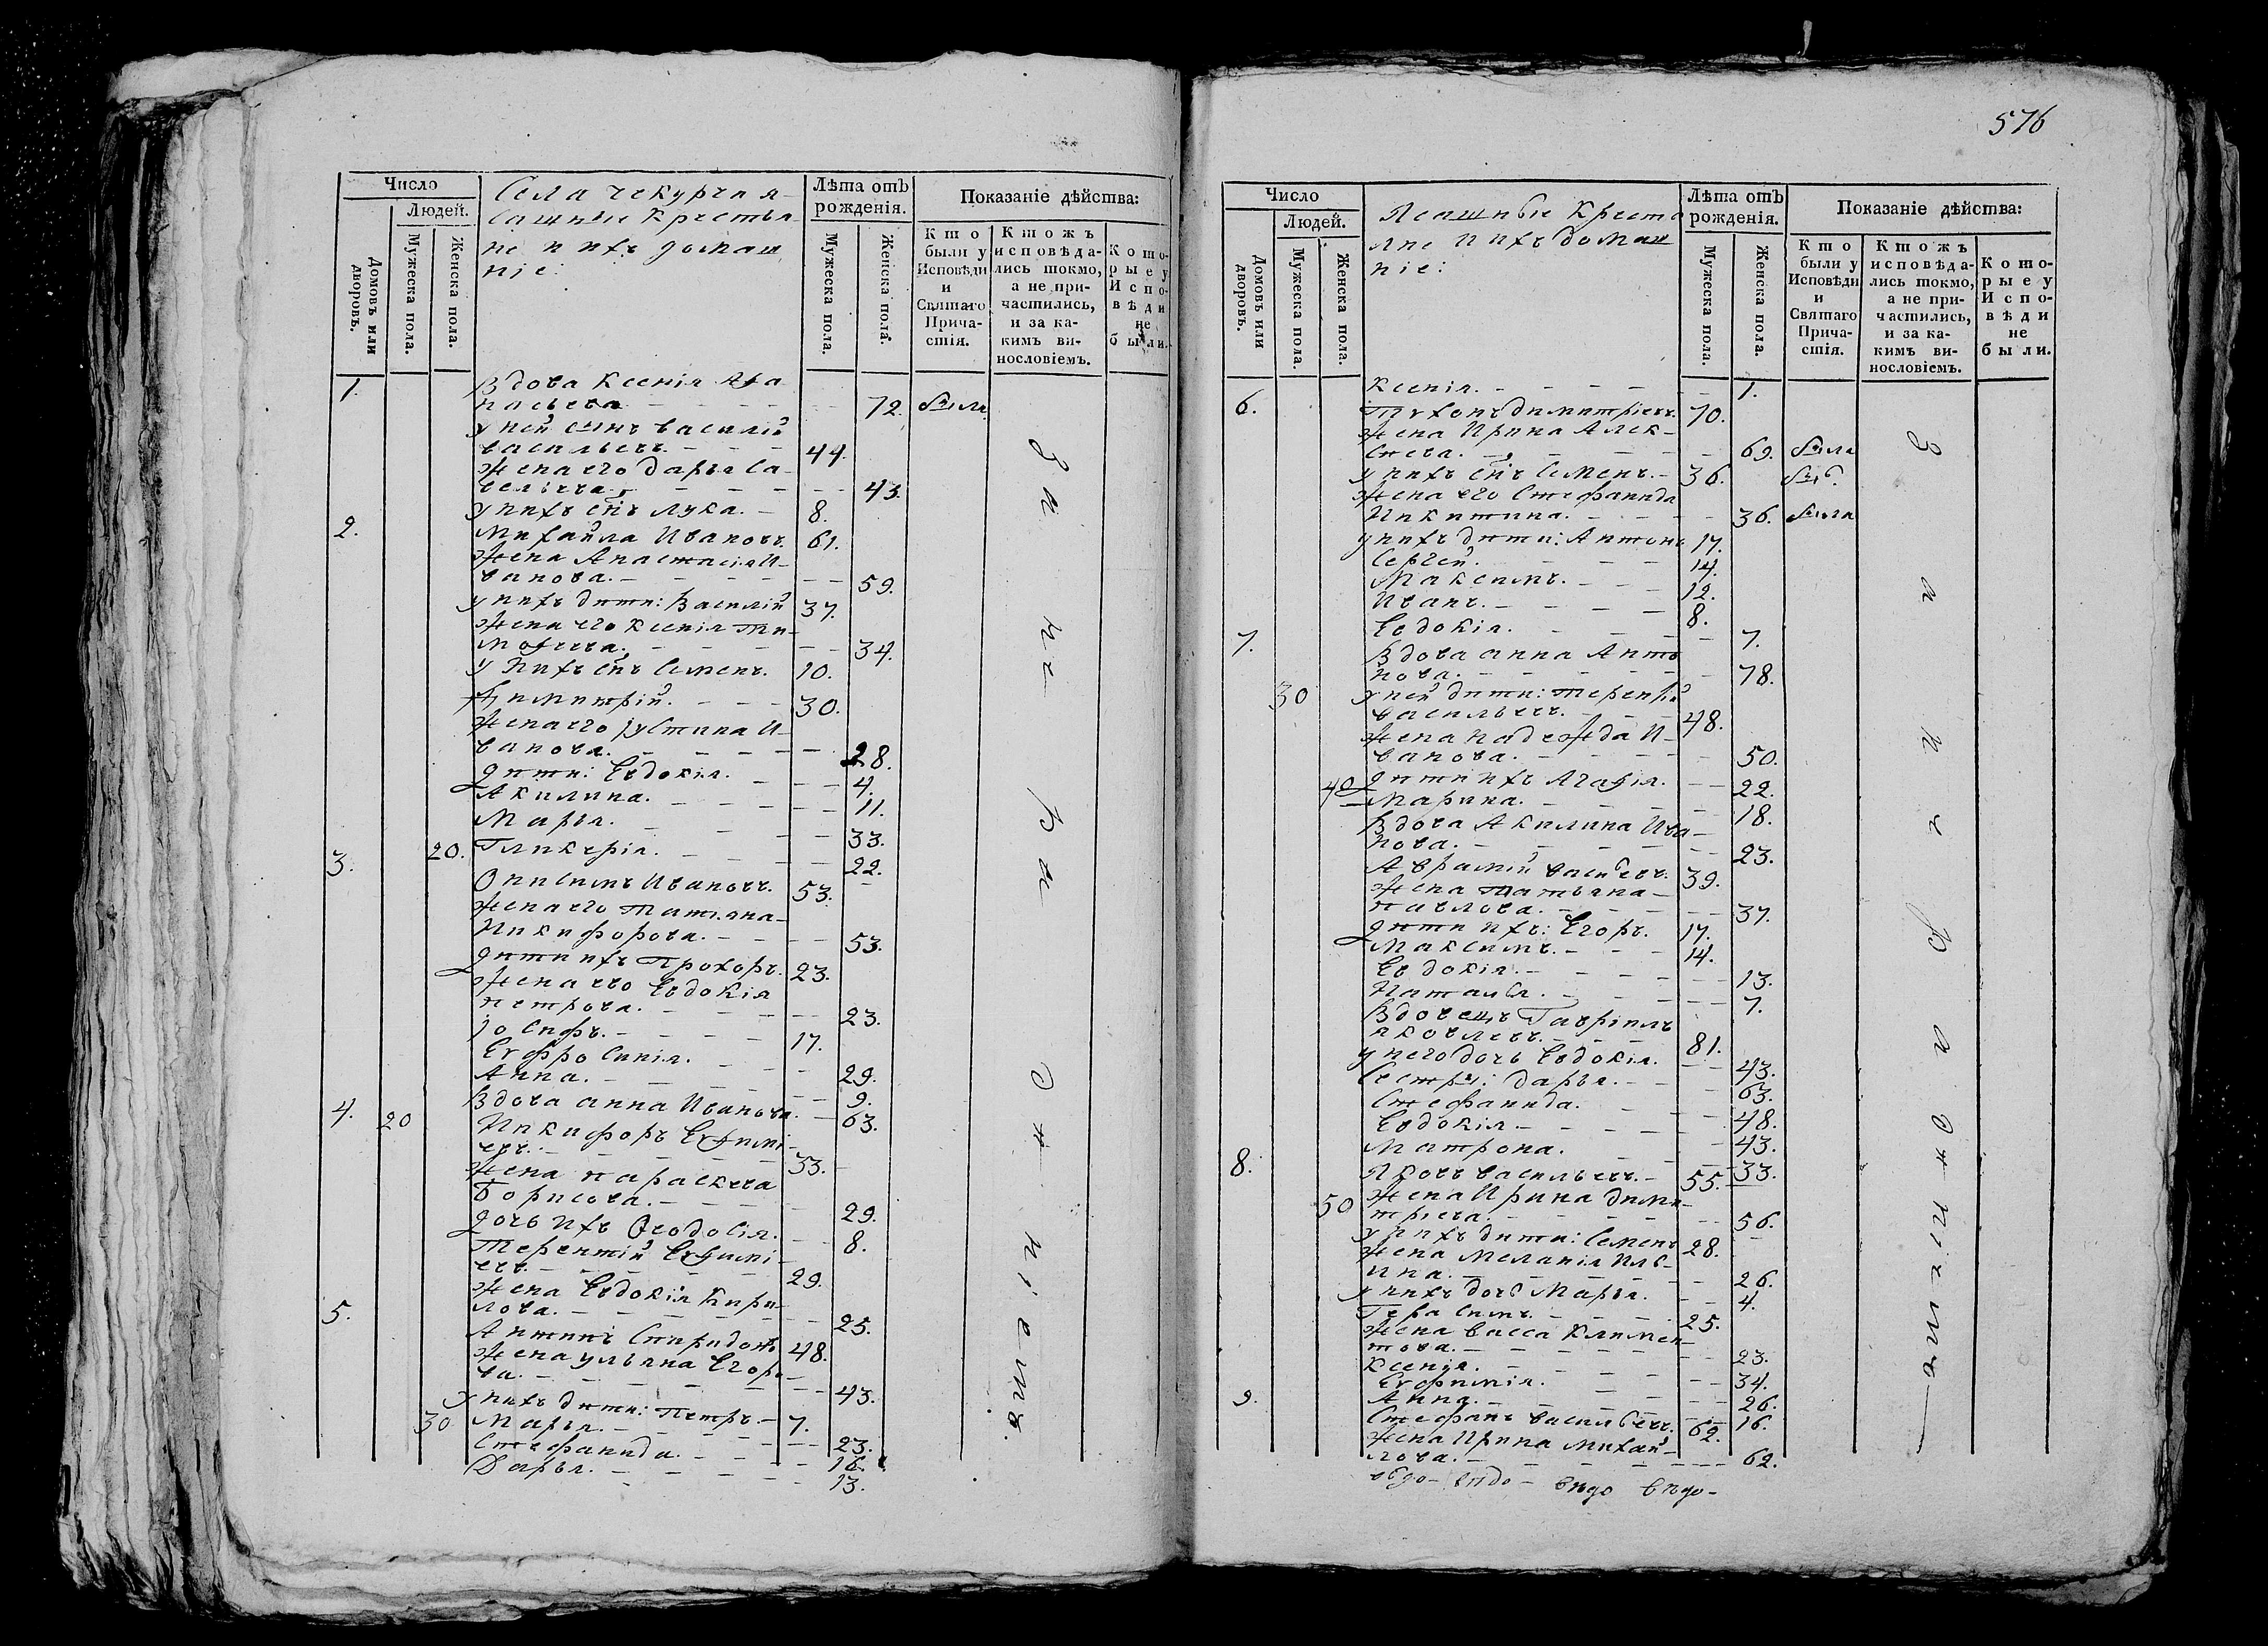 Число
Людей.
Домовъ или дворовъ.
Мужеска пола.
Женска пола.
Села чекурча я-
сашные крестья
не и ихъ домаш
ніе:
Лѣта отъ рожденія.
Мужеска пола.
Женска пола.
Показаніе дѣйства:
Кто были у Исповѣди и Святаго Причастія.
Ктожъ исповѣдались токмо, а не причастились, и за какимъ винословіемъ.
Которые у Исповѣди не были.
1. Вдова Ксенія Афа
насьева 72. была
у ней сынъ василій
васильевъ. 44.
жена его дарья Са-
вельева 43.
у нихъ сնъ лука. 8.
2. Михайла Ивановъ. 61.
жена Анастасія И-
ванова. 59.
у нихъ дети: Василій 37.
жена его ксенія ти-
мофеева. 34.
у нихъ снъ Семенъ. 10.
Димитрій. 30.
жена его іустина И-
ванова. 28.
дети: Евдокія. 4.
Акилина. 11.
Марья. 33.
20. Гликерія. 22.
3. Онисимъ Ивановъ. 53.
жена его татіяна
Никифорова. 53.
дети ихъ прохоръ. 23.
жена его Евдокія
петрова. 23.
іосифъ. 17.
Егфросинія. 29.
Анна. 9.
Вдова анна Иванова. 63.
4. 20 Никифоръ Евфимі
евъ. 33.
жена параскева
Борисова. 29.
дочь ихъ Ѳеодосія. 8.
терентій Евфимі-
евъ. 29.
жена Евдокія Кири-
лова. 25.
5. Антипъ Спиридоновъ 48.
жена ульяна Егоро-
ва. 43.
у нихъ дети: Петръ 7.
30 Марья. 23.
Стефанида. 16.
Дарья. 13.
За не раченіемъ.
576
Число
Людей.
Домовъ или дворовъ.
Мужеска пола.
Женска пола.
Ясашные кресть
яне и ихъ домаш
ніе:
Лѣта отъ рожденія.
Мужеска пола.
Женска пола.
Показаніе дѣйства:
Кто были у Исповѣди и Святаго Причастія.
Ктожъ исповѣдались токмо, а не причастились, и за какимъ винословіемъ.
Которые у Исповѣди не были.
Ксенія. 1.
6. Тихонъ димитріевъ. 70.
жена Ирина Алек-
сеева. 69. была
у нихъ снъ Семенъ. 36. бывъ.
жена его Стефанида
Никитина. 36. была
у нихъ дети: Антонъ 17.
Сергей. 14.
Максимъ. 12.
Иванъ. 8.
Евдокія. 7.
7. Вдова анна Анто
нова. 78.
30 у ней дети: терентій
васильевъ. 48.
жена надежда И-
ванова. 50.
дети ихъ Агафія. 22.
40 Марина. 18.
Вдова Акилина Ива
нова. 23.
Аврамій васильевъ. 39.
жена татьяна
павлова. 37.
дети ихъ: Егоръ. 17.
Максимъ. 14.
Евдокія. 13.
Наталья. 7.
Вдовецъ Гавріилъ
яковлевъ. 81.
у него дочь Евдокія. 43.
Сестры: дарья. 63.
Стефанида. 48.
Евдокія. 43.
Матрона. 33.
8. Яковъ васильевъ. 55.
50 жена Ирина дими-
тріева. 56.
у нихъ дети: Семенъ 28.
жена Меланія Иль-
ина. 26.
у нихъ дочь Марья. 4.
Герасимъ. 25.
жена васса климен-
това. 23.
Ксенія. 34.
Егфимія. 26.
Анна. 16.
9. Стефанъ васильевъ. 62.
жена Ирина михай-
лова. 62.